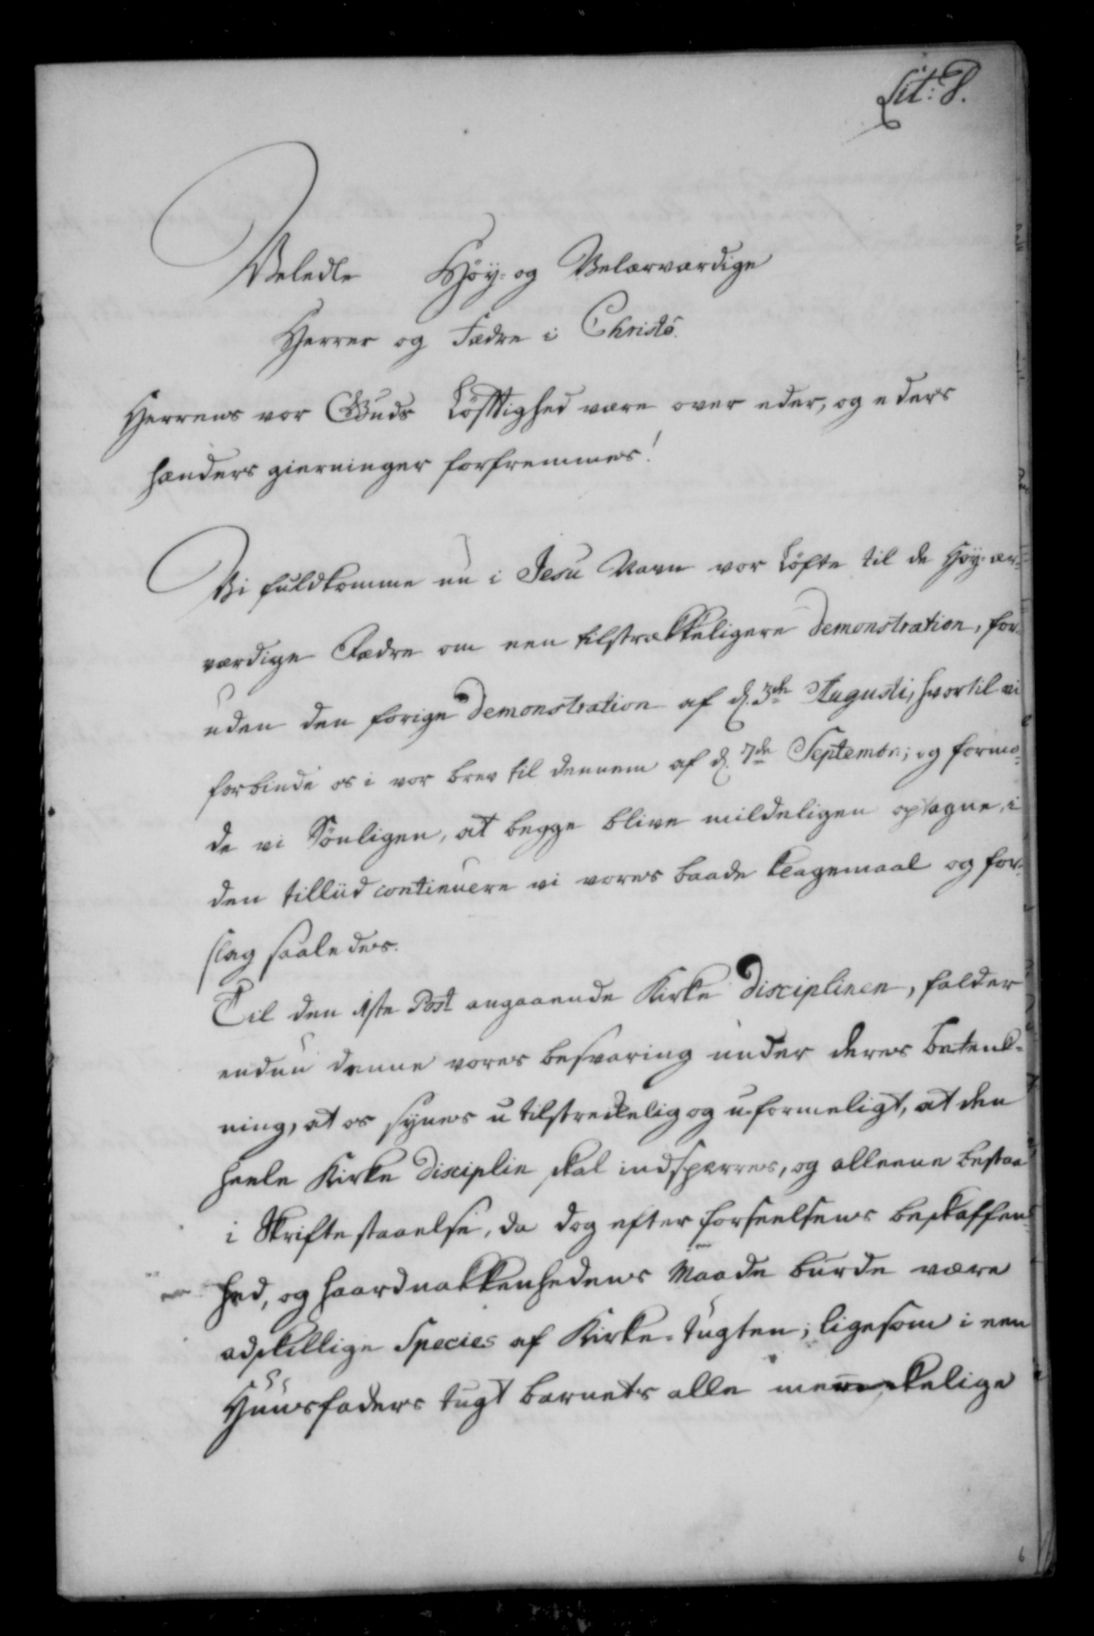 Lit: P.
Veledle Høÿ- og Velærværdige
Herrer og Fædre i Christo.
Herrens vor Guds Løstighed være over eder, og eders
hænders gierninger forfremmes!
Vi fuldkomme nu i Jesu Navn vor Løfte til de Høÿ-ær-
værdige Fædre om een tilstrækkeligere demonstration, for-
uden den forige demonstration af d. 3de Augusti, hvortil vi
forbinde os i vor brev til dennem af d. 7de Septembr; og formo-
de vi Sønligen, at begge blive mildeligen optagne, i
den tilliid continuere vi vores baade klagemaal og for-
slag saaledes.
Til den 1ste Post angaaende Kirke disciplinen, falder
endnu denne vores besvaring under deres betenk-
ning, at os synes utilstreckelig og uformeligt, at den
heele Kirke disciplin skal indspærres, og alleene bestaa
i Skriftestaaelse, da dog efter forseelsens beskaffen-
hed, og haardnakkenhedens Maade burde være
adskillige Species af Kirke-tugten; ligesom i een
Huusfaders tugt barnets alle menskelige